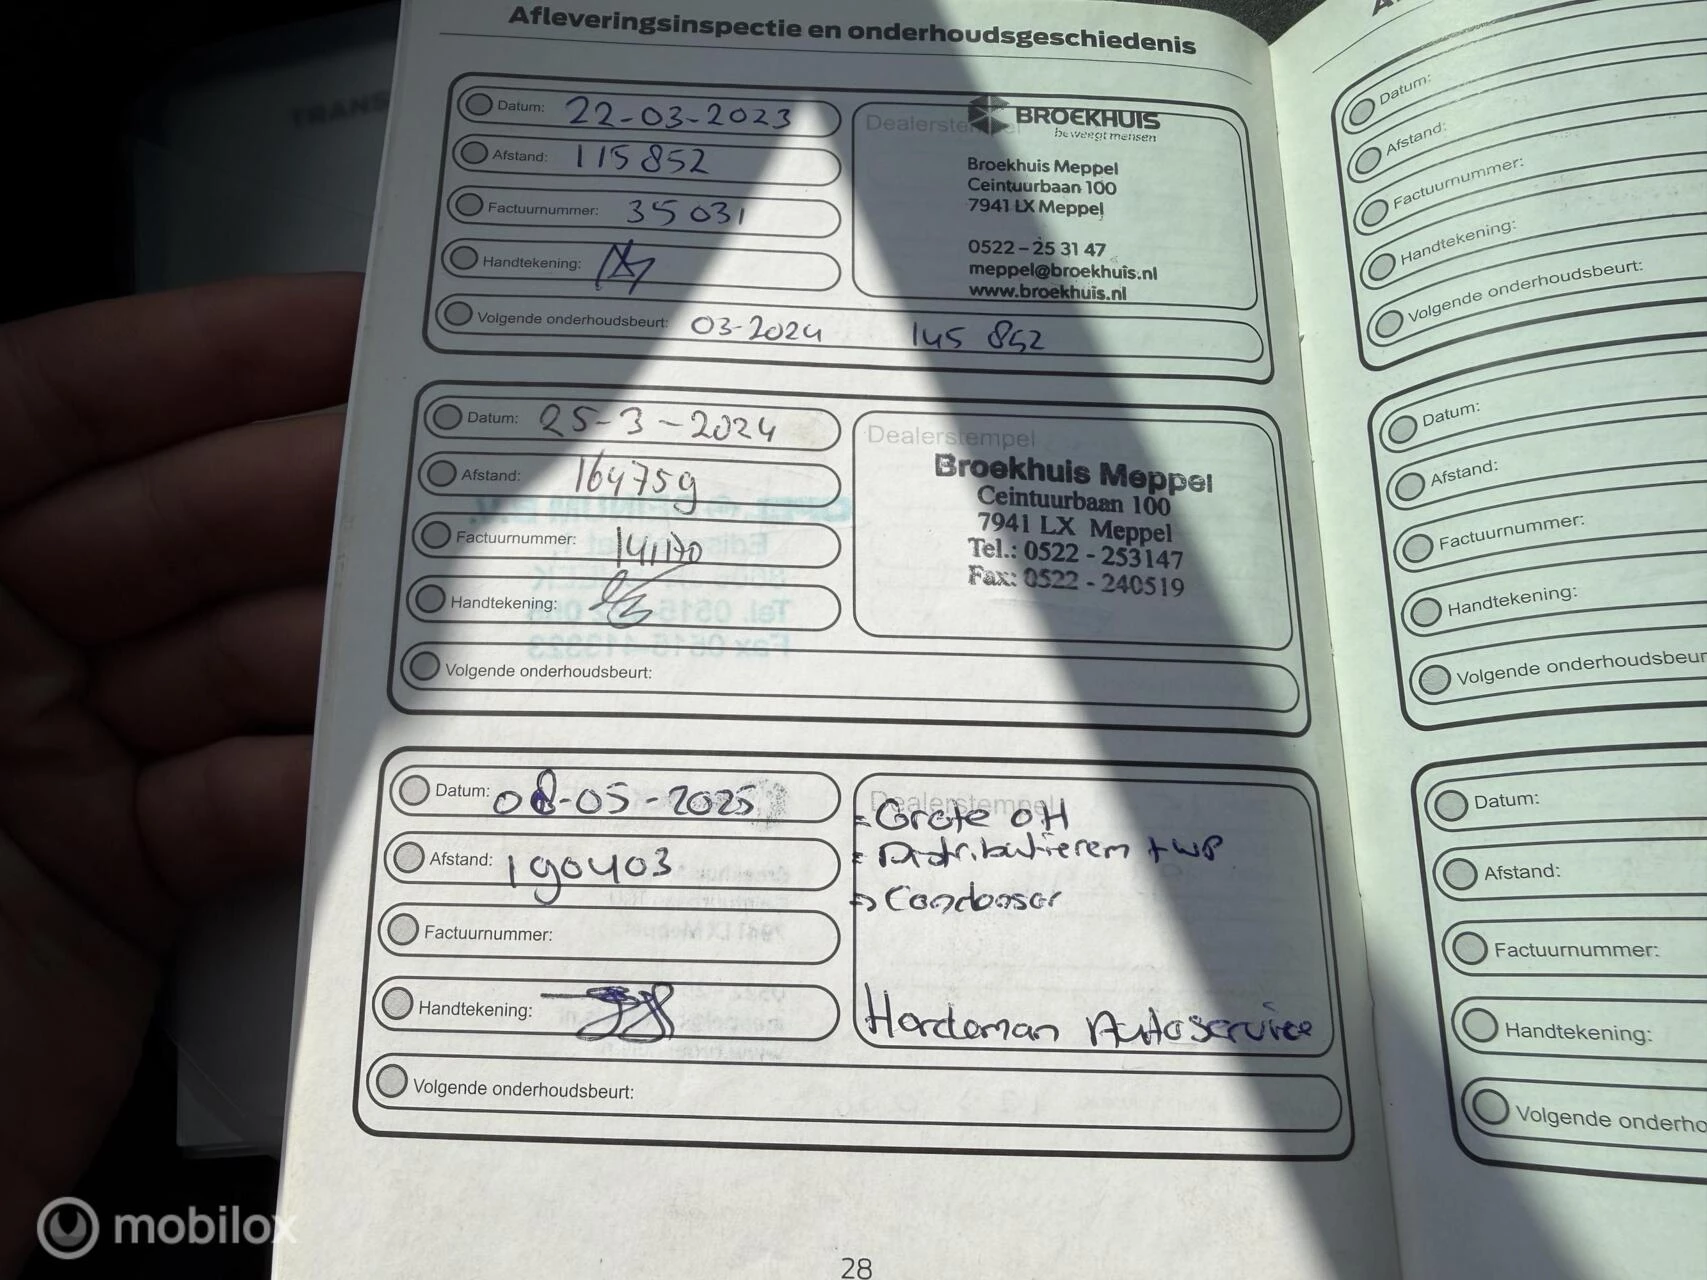 TRANS
Afleveringsinspectie en onderhoudsgeschiedenis
Datum: 22-03-2023
Afstand: 115852
Factuurnummer: 35031
Handtekening:
Volgende onderhoudsbeurt: 03-2024 145 852
Dealerstempel
BROEKHUIS
beweegt mensen
Broekhuis Meppel
Ceintuurbaan 100
7941 LX Meppel
0522-25 31 47
meppel@broekhuis.nl
www.broekhuis.nl
Datum: 25-3-2024
Afstand: 164759
Factuurnummer:
Handtekening:
Volgende onderhoudsbeurt:
Dealerstempel
Broekhuis Meppel
Ceintuurbaan 100
7941 LX Meppel
Tel.: 0522 - 253147
Fax: 0522 - 240519
Datum: 08-05-2025
Afstand: 190403
Factuurnummer:
Handtekening:
Volgende onderhoudsbeurt:
Dealerstempel
Grote OH
Distributierem + WP
Condensor
Hardeman Autoservice
28
Datum:
Afstand:
Factuurnummer:
Handtekening:
Volgende onderhoudsbeurt:
Datum:
Afstand:
Factuurnummer:
Handtekening:
Volgende onderhoudsbeur
Datum:
Afstand:
Factuurnummer:
Handtekening:
Volgende onderho
mobilox